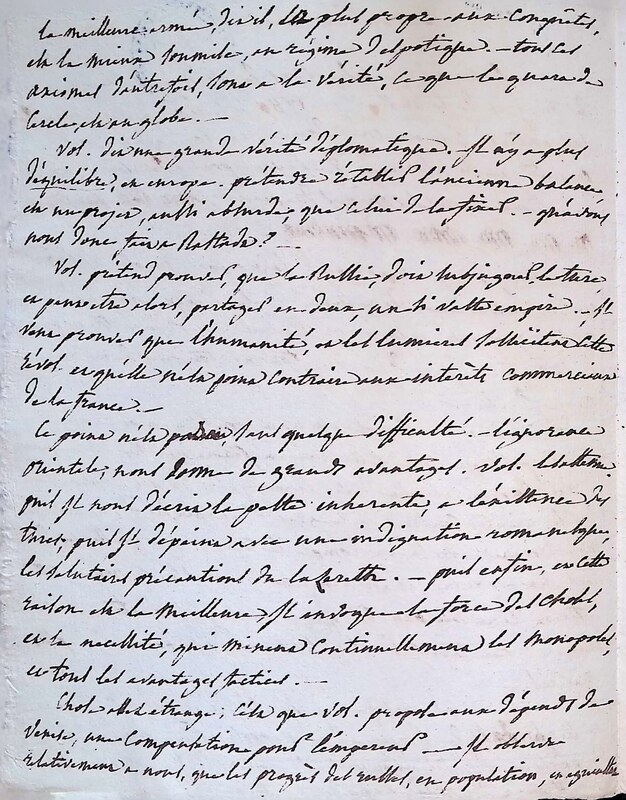 la meilleure armée, dit il, la plus propre aux conquêtes,
est la mieux soumise, au régime despotique. – tous ces
axiomes d'autrefois, sont à la vérité, ce que le quara de
cercle est au globe. –
Vol. dit une grande vérité diplomatique. Il n'y a plus
d'équilibre, en europe. prétendre rétablir l'ancienne balance
est un projet, aussi absurde, que celui de la fixer. – qu'avons
nous donc fait a Rastadt? –
Vol. prétend prouver, que la Russie, doit subjuguer, la turc
et peut etre alors, partager en deux, un si vaste empire. – Il
veut prouver que l'humanité, et les lumieres sollicitent cette
révol. et qu'elle n'est point contraire aux intérêts commerciaux
de la france. –
Ce point n'est pas sans quelque difficulté. – l'ignorance
orientale, nous donne de grands avantages. Vol.
puis Il nous décrit la peste inherente, a l'existence des
turcs, puis Il dépeint avec une indignation romanesque,
les salutaires précautions du lazareth. – puis enfin, et cette
raison est la meilleure, Il invoque la force des choses,
et la necessité, qui minent continuellement les monopoles,
et tous les avantages factices. –
Chose assez étrange; c'est que Vol. propose aux dépends de
Venise, une compensation pour l'empereur – Il observe
relativement a nous, que les progrès des russes, en population, en agriculture